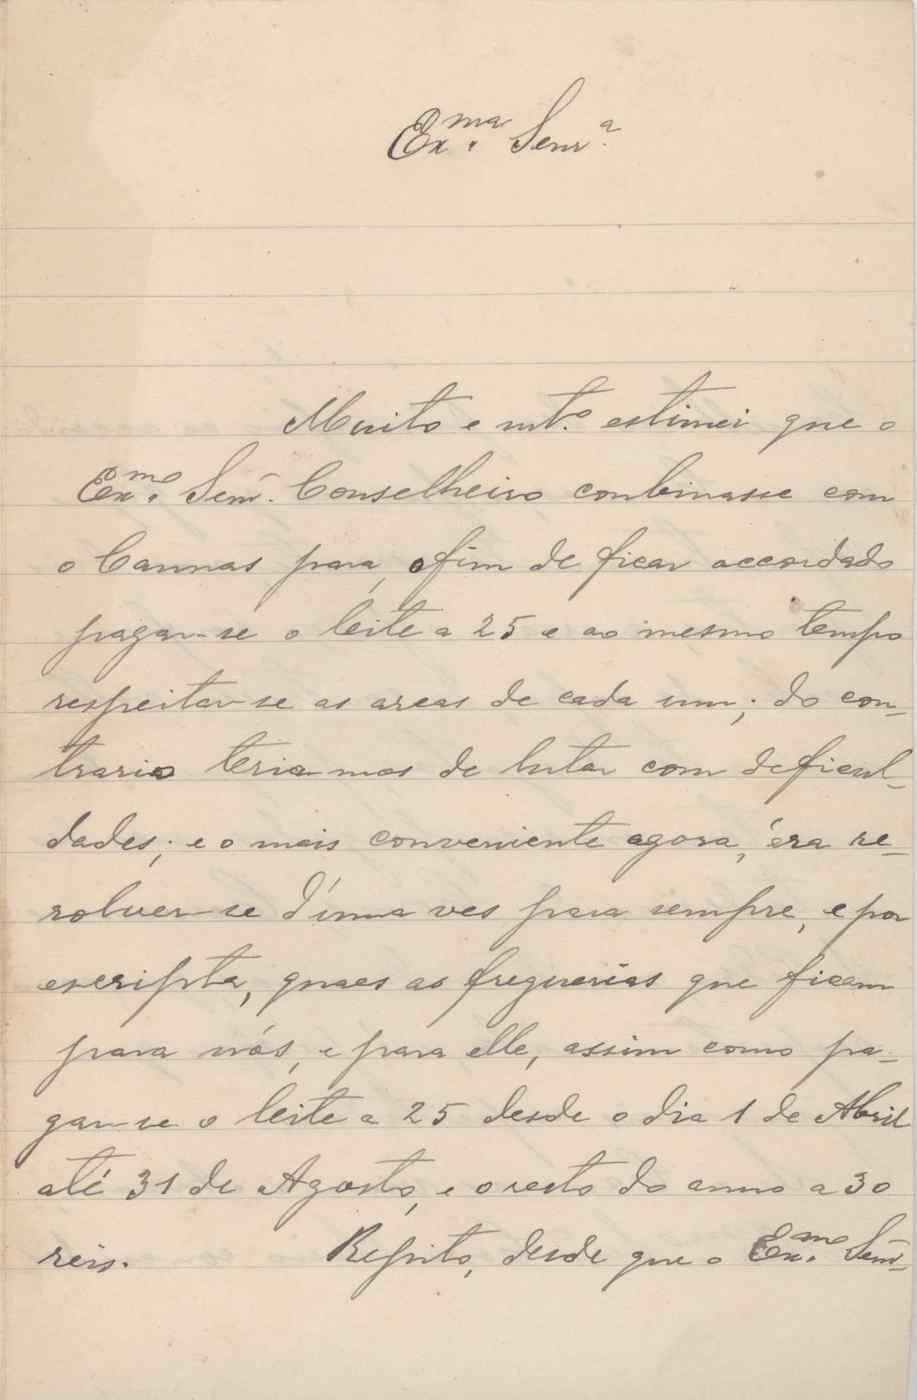 Ex.ma Senr.a
Muito e mt.o estimei que o
Ex.mo Senr. Conselheiro conbinasse com
o Cannas para, o fim de ficar accordado
pagar-se o leite a 25 e ao mesmo tempo
respeitar-se as areas de cada um; do con-
trario teria-mos de lutar com deficul-
dades; e o mais conveniente agora, éra re-
solver-se d'uma ves para sempre, e por
escripta, quaes as freguerias que ficam
para nós, e para elle, assim como pa-
gar-se o leite a 25 desde o dia 1 de Abril
até 31 de Agosto, e o resto do anno a 30
reis. Repito, desde que o Ex.mo Senr.